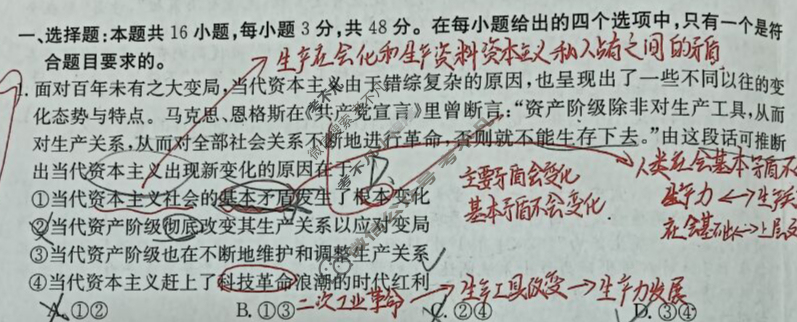 一、选择题：本题共 16 小题，每小题 3 分，共 48 分。在每小题给出的四个选项中，只有一个是符
合题目要求的。
生产社会化和生产资料资本主义私人占有之间的矛盾
1. 面对百年未有之大变局，当代资本主义由于错综复杂的原因，也呈现出了一些不同以往的变
化态势与特点。马克思、恩格斯在《共产党宣言》里曾断言：“资产阶级除非对生产工具，从而
对生产关系，从而对全部社会关系不断地进行革命，否则就不能生存下去。”由这段话可推断
出当代资本主义出现新变化的原因在于
D
人类社会基本矛盾
主要矛盾会变化
①当代资本主义社会的基本矛盾发生了根本变化
生产力 ←→ 生产
基本矛盾不会变化
②当代资产阶级彻底改变其生产关系以应对变局
社会基础 ←→ 上层
③当代资产阶级也在不断地维护和调整生产关系
④当代资本主义赶上了科技革命浪潮的时代红利
二次工业革命 → 生产工具改变 → 生产力发展
A. ①② B. ①③ C. ②④ D. ③④